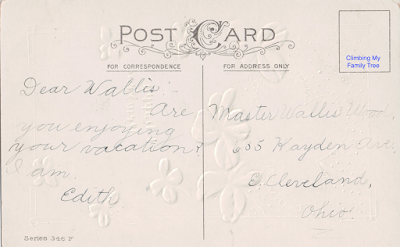 POST CARD
FOR CORRESPONDENCE
FOR ADDRESS ONLY
Climbing My
Family Tree
Dear Wallis:-
Are
you enjoying
your vacation?
I am.
Edith
Master Wallis
Hayden Ave.
E. Cleveland,
Ohio.
Series 346 F